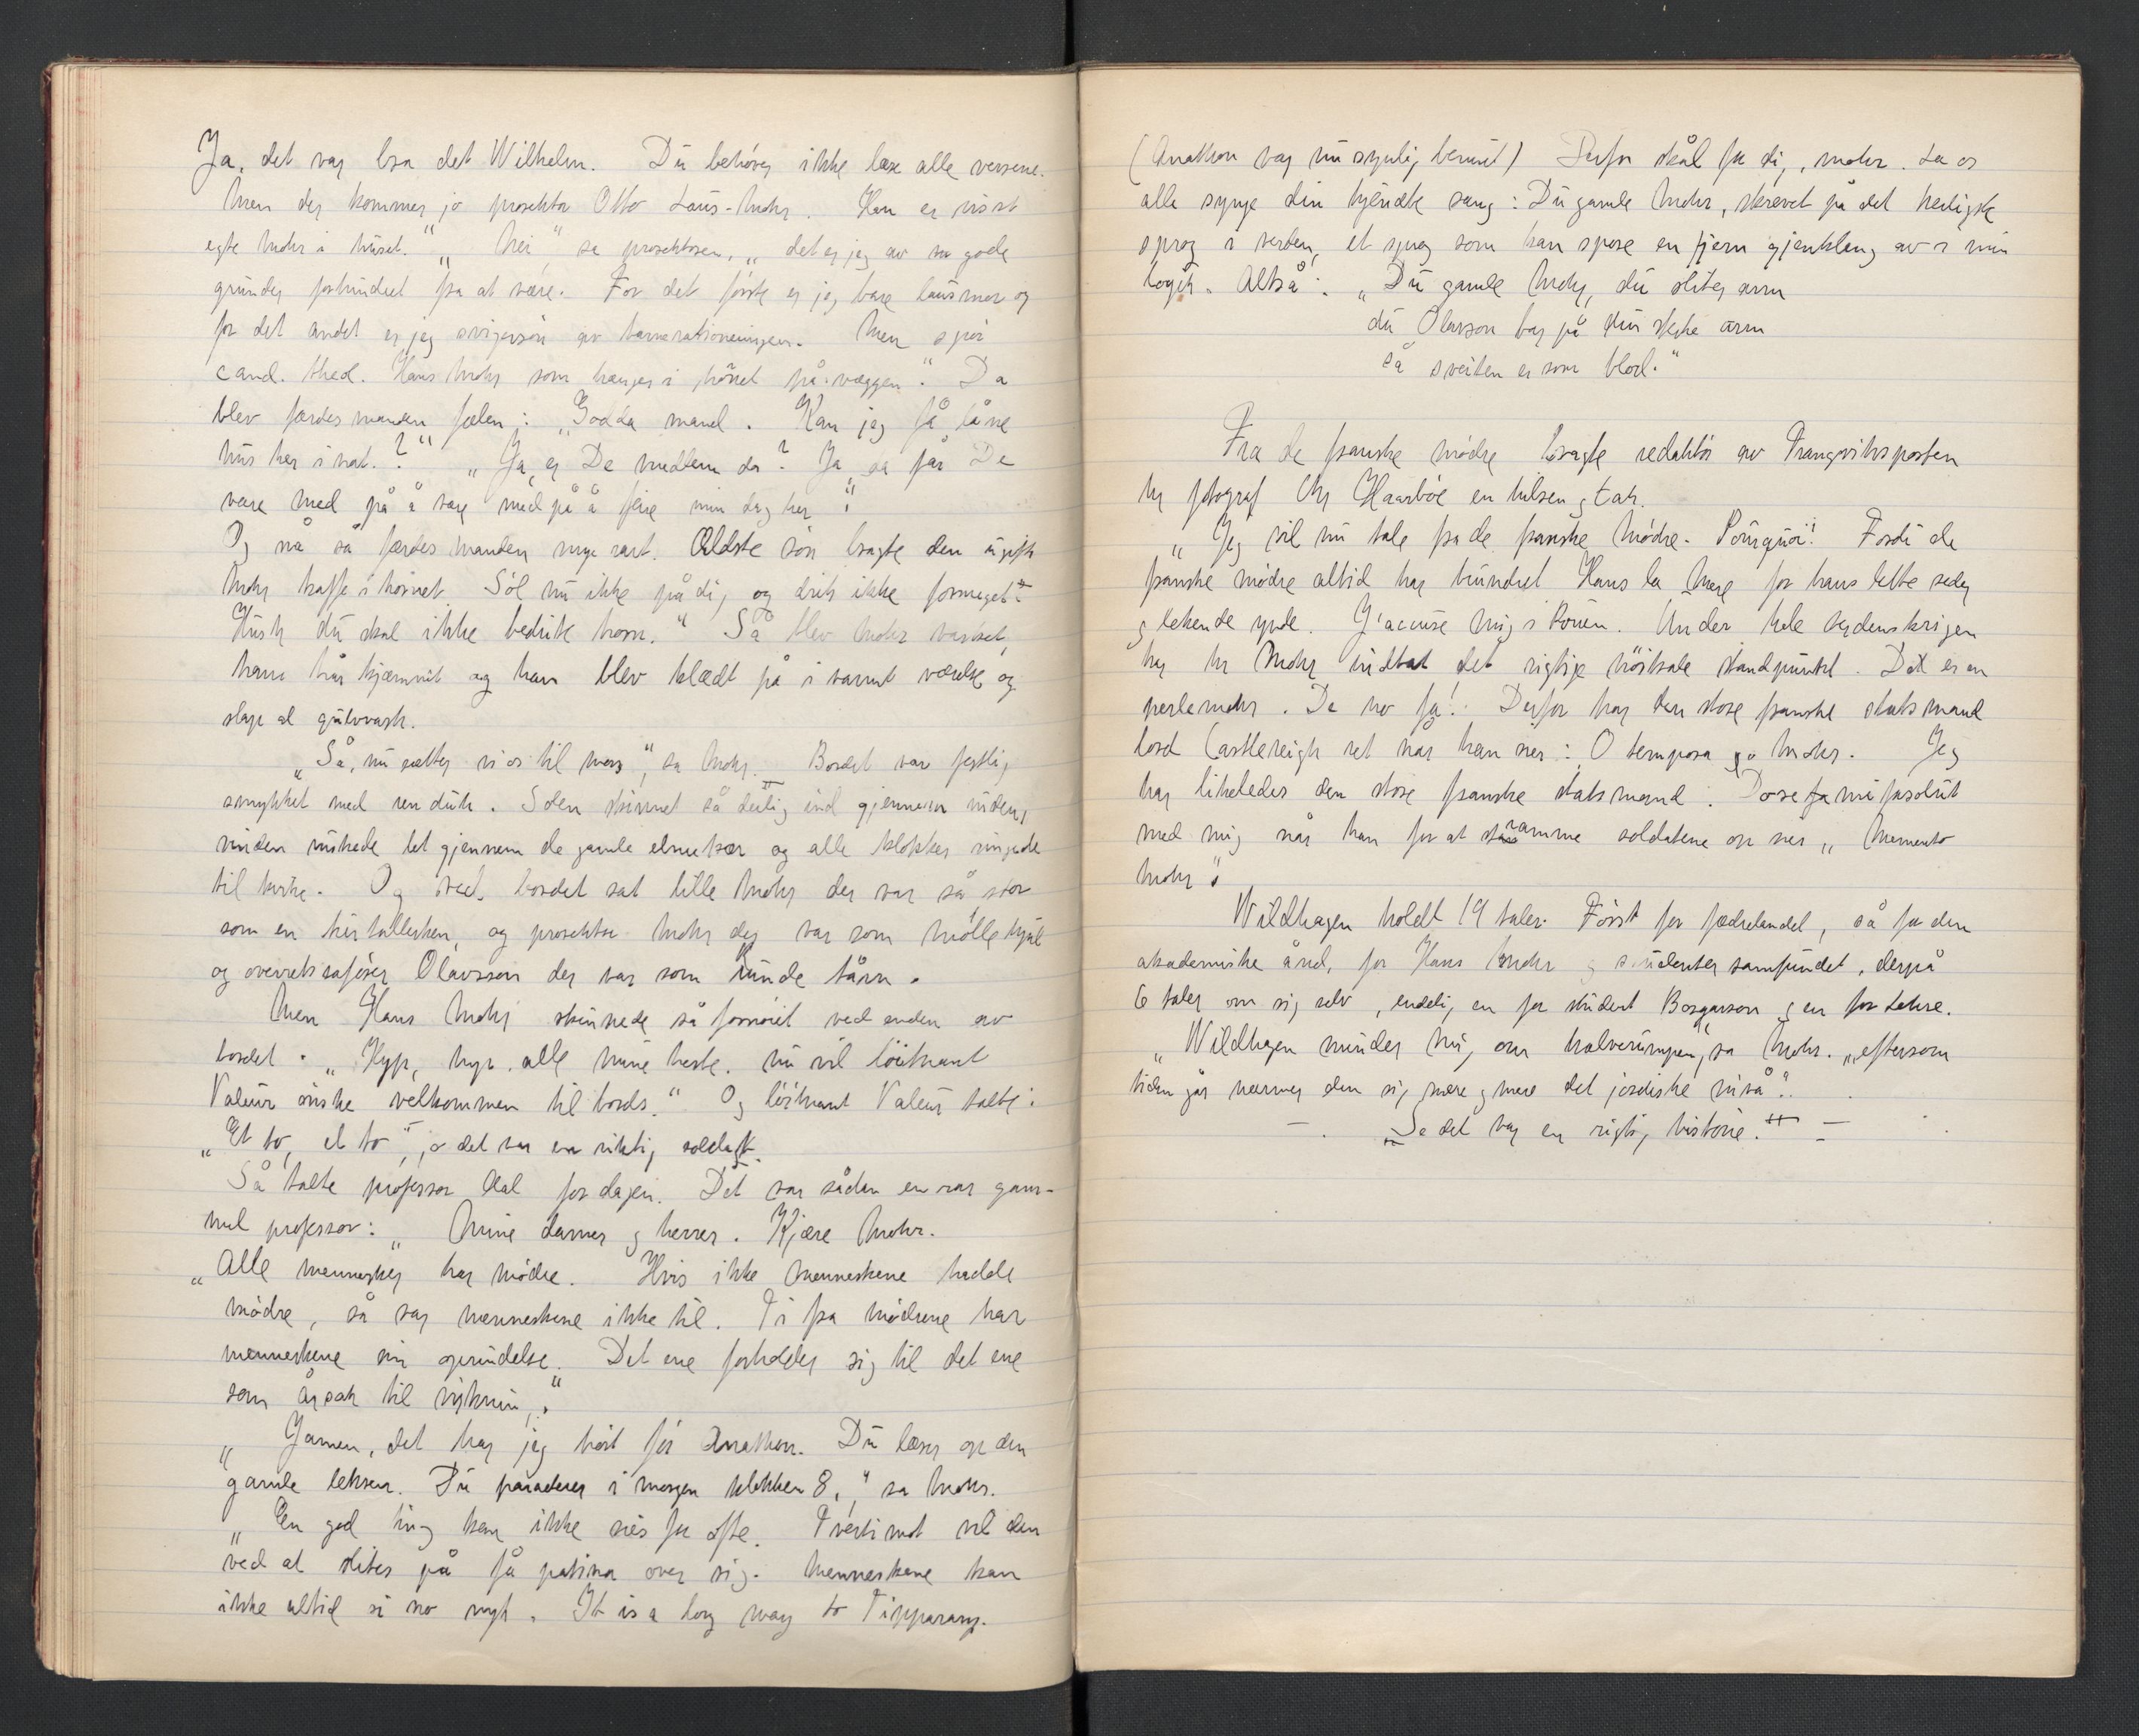 Ja, det var bra det Wilhelm. Du behöver ikke læse alle versene.
Men der kommer jo prosektor Otto Laus-Mohr. Han er visst
egte Mohr i huset." "Nei" sa prosektoren, "det er jeg av to gode
grunder forhindret fra at være. For det förste er jeg bare lausmor og
for det andet er jeg svigersön av barnerationeringen. Men spör
cand. theol. Hans Mohr som hænger i hönet på væggen." Da
blev færdesmanden fælen: "Godda mand. Kan jeg få låne
hus her i nat.?" "Ja, er De medlem da? Ja så får De
være med på å være med på å feire min dag her".
Og nå så færdesmanden mye rart. Ældste sön bragte den
Mohr kaffe i hornet. Söl nu ikke på dig og drik ikke formeget.
Husk du skal ikke bedrike ham." Så blev Mohr vasket,
hans hår kjæmmit og han blev klædt på i varmt og
slage al gulvvask.
"Så, nu sætter vi os til bors", sa Mohr. Bordet var festlig
smykket med ren duk. Solen skinnet så deilig ind gjennem ruden,
vinden viskede let gjennem de gamle elmekær og alle klokker ringede
til kirke. Og ved bordet sat lille Mohr der var så stor
som en tintallerken, og prosektor Mohr der var som Möllehjul
og overretssaförer Olavsson der var som Runde tårn.
Men Hans Mohr skinnede så fornöiet ved enden av
bordet. "Hyp, hyp, alle mine heste. Nu vil löitnant
Valeur önske velkommen til bords." Og löitnant Valeur talte:
"Et to, et to", ja det var en riktig soldat.
Så talte professor Aal for dagen. Det var sådan en rar gam-
mel professor: "Mine damer og herrer. Kjære Mohr.
"Alle mennesker har mödre. Hvis ikke menneskene hadde
mödre, så var menneskene ikke til. Ti fra mödrene har
menneskene sin oprindelse. Det ene forholder sig til det ene
som årsak til virkning."
"Jamen, det har jeg hört för Anathon. Du læser op den
gamle leksen. Du paraderer i morgen klokken 8," sa Mohr.
"En god ting kan ikke sies for ofte. Tvertimot vil den
ved at slites på få patina over sig. Menneskene kan
ikke altid si no nyt. It is a long way to Tipparary.
(Anathon var nu synlig berust) Derfor skål for dig, mohr. La os
alle synge din kjendte sang: Du gamle Mohr, skrevet på det heiligste
sprog i verden, et sprog som kan spore en fjern gjenklang av i min
logik. Altså: "Du gamle Mohr, du sliter arm
du Olavson bar på din sterke arm
så sveiten er som blod."
Fra de franske mödre bragte redaktör av Trangviksposten
hr fotograf Chr Haarböe en hilsen og tak.
"Jeg vil nu tale fra de franske Mödre. Pourquoi! Fordi de
franske mödre altid har bundret Hans la Mere for hans lette seder
og lekende ynde. J'accuse mig i Rouen. Under hele verdenskrigen
har hr Mohr indtat det rigtige nöitrale standpunkt. Det er en
perlemohr. De no ja! Derfor har den store franske statsmand
lord Castlereigh ret når han sier: O tempora og o Mohr. Jeg
har likeledes den store franske statsmand: Doretami fasolut
med mig når han for at stramme soldatene op sier "Memento
Mohr".
Wildhagen holdt 19 taler. Först for fædrelandet, så for den
akademiske ånd, for Hans Mohr og studentersamfundet, derpå
6 taler om sig selv, endelig en for student Borgarson og en for Lehre.
"Wildhagen minder mig om halverumpen", sa Mohr. "eftersom
tiden går nærmer den sig mere og mere det jordiske nivå".
"Se det var en rigtig historie."